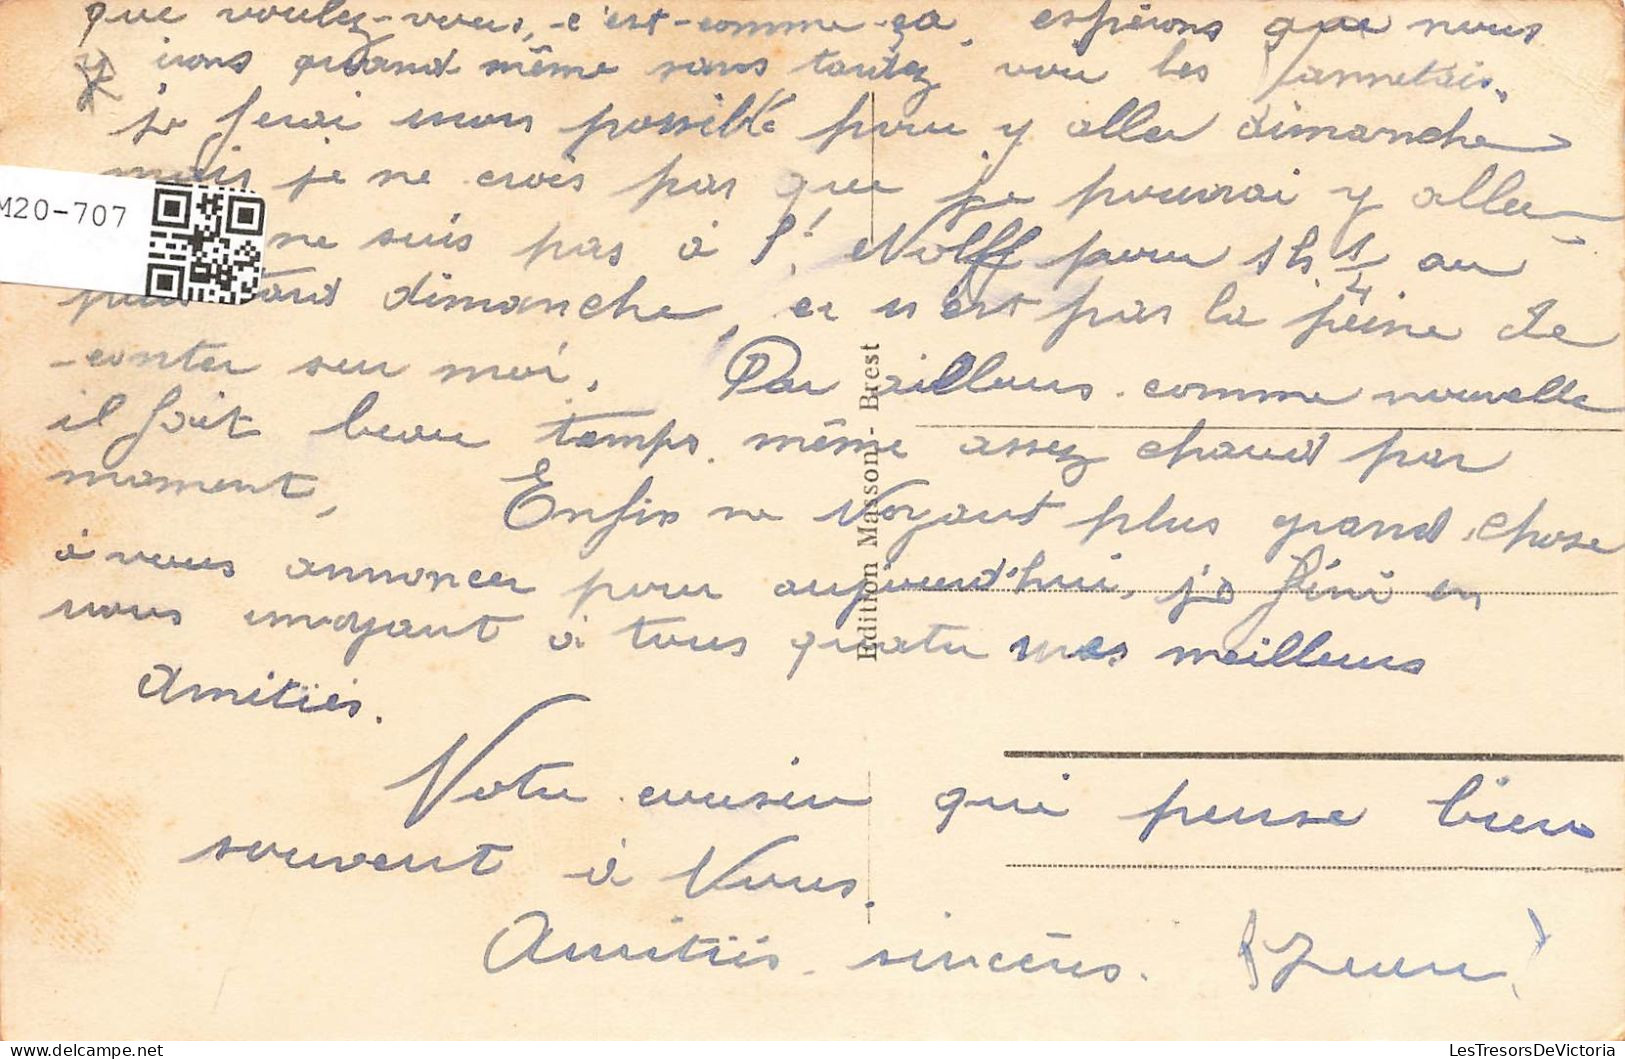 que voulez-vous, c'est-comme-ça, espérons que nous
y irons quand même sans tardez voir les
je ferai mon possible pour y aller dimanche
mais je ne crois pas que je pourrai y aller
M20-707
ne suis pas à St Nolff pour 1h 1/4 ou
plus tard dimanche, ce n'est pas la peine de
conter sur moi. Par ailleurs comme nouvelle
il fait beau temps même assez chaud par
moment, Enfin ne voyant plus grand chose
à vous annoncer pour aujourd'hui, je fini en
vous envoyant à tous quatre mes meilleurs
Amitiés.
Votre cousin qui pense bien
souvent à Vous.
Amitiés sincères.
Edition Masson-Brest
LesTresorsDeVictoria